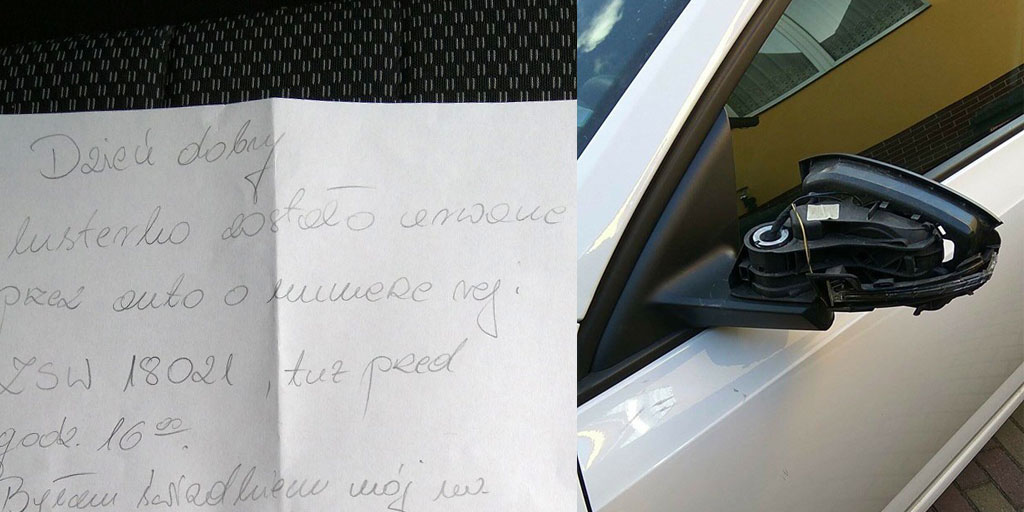 Dzień dobry
lusterko zostało urwane
przez auto o numerze rej.
ZSW 18021, tuż przed
godz. 16⁰⁰.
Byłam świadkiem mój nr